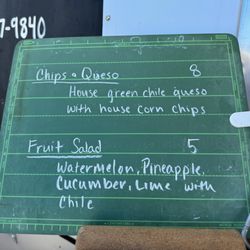 7-9840
Chips & Queso 8
House green chile queso
with house corn chips
Fruit Salad 5
Watermelon, Pineapple,
Cucumber, Lime with
Chile